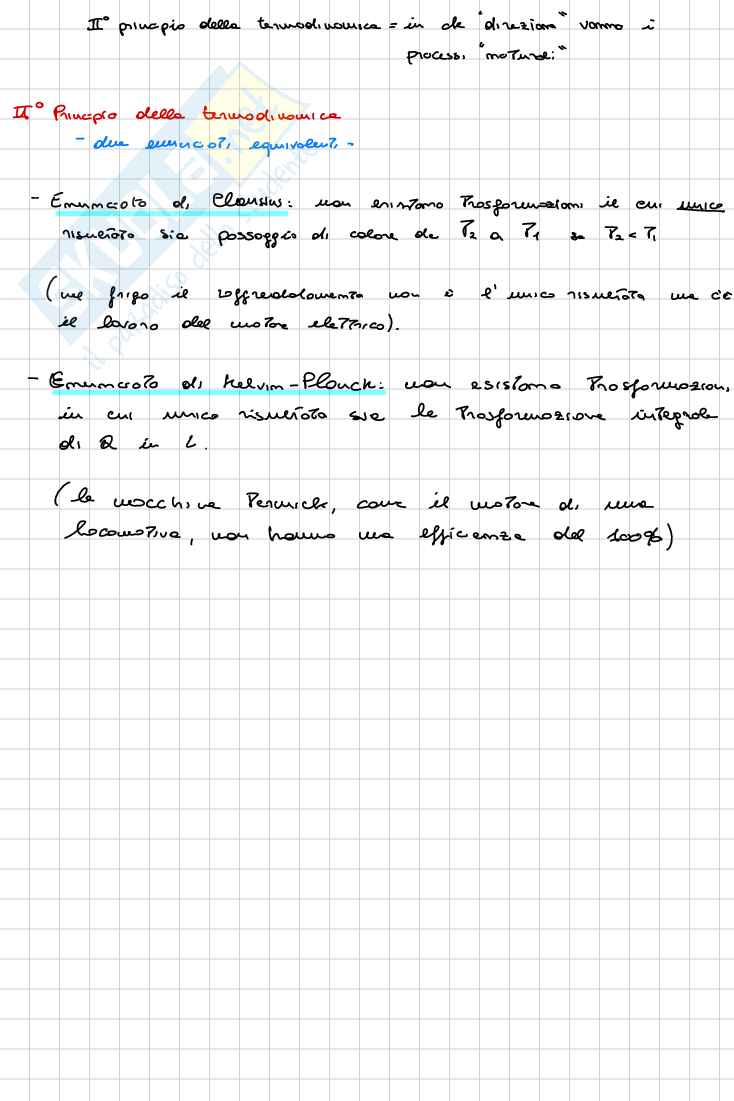 II° principio della termodinamica = in che "direzione" vanno i
processi "naturali"
II° Principio della termodinamica
- due enunciati equivalenti -
- Enunciato di Clausius: non esistono trasformazioni il cui unico
risultato sia passaggio di calore da T2 a T1 se T2 < T1
(nel frigo il raffreddamento non è l'unico risultato ma c'è
il lavoro del motore elettrico).
- Enunciato di Kelvin-Planck: non esistono trasformazioni
in cui unico risultato sia la trasformazione integrale
di Q in L.
(le macchine termiche, come il motore di una
locomotiva, non hanno una efficienza del 100%)
SKUOLA.net
il paradiso dello studente